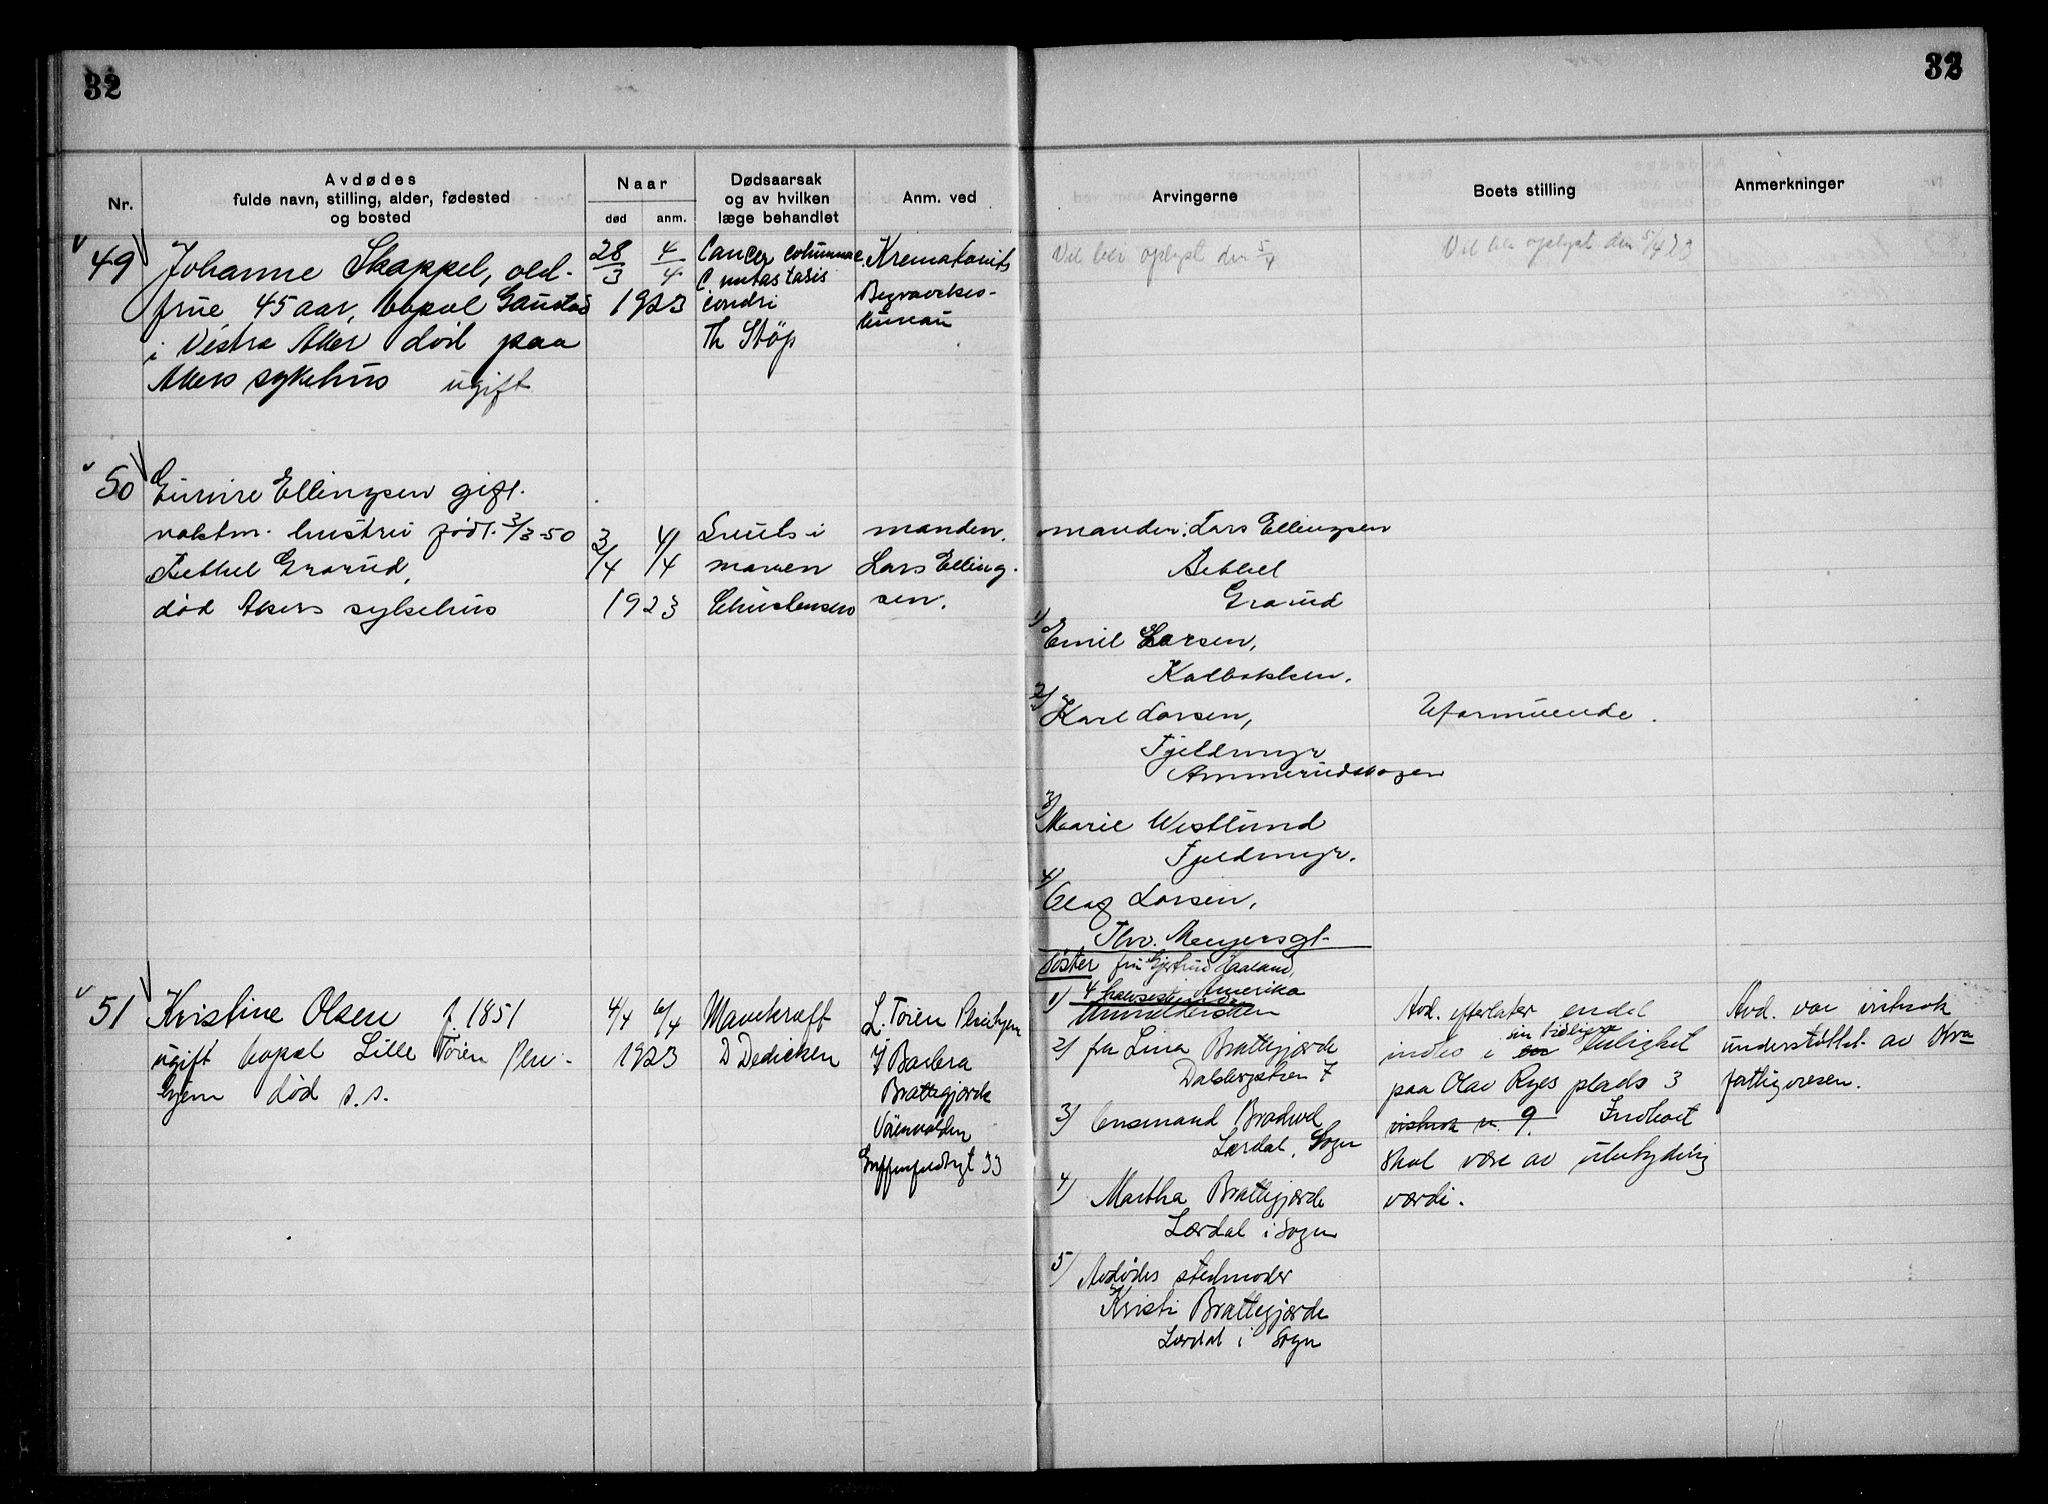 32
32
Nr.
Avdødes
fulde navn, stilling, alder, fødested
og bosted
Naar
død
anm.
Dødsaarsak
og av hvilken
læge behandlet
Anm. ved
Arvingerne
Boets stilling
Anmerkninger
49
Johanne Skappel, old-
frue 45 aar, bopæl Gaustad
i Vestre Aker død paa
Akers sykehus ugift
28/3 4/4
1923
Cancer columnae
c. metastasis
Th Støp
Krematoriets
Begravelses-
bureau
Vil bli oplyst den 5/4
Vil bli oplyst den 5/4 23
50
Ellingsen gift.
vaktm. hustru født. 3/3-50
Bethel Grorud,
død Akers sykehus
3/4 4/4
1923
i
maven
Christensen
manden.
Lars Elling-
sen.
manden: Lars Ellingsen
Bethel
Grorud
1) Emil Larsen,
Kalbakken.
2) Karl Larsen,
Fjeldmyr
Ammerudskogen
Uformuende.
3) Marie Westlund
Fjeldmyr.
4) Olaf Larsen,
Thv. Meyersgt.
51
Kristine Olsen f. 1851
ugift bopæl Lille Tøien Pleie-
hjem død s.s.
4/4 6/4
1923
Mavekræft
D Dedichen
L. Tøien Pleiehjem
v/ Barbra
Brattegjerde
Griffenfeldtsgt 33
Søster fru Gjertrud Haaland,
1) Amerika
2) fru Lina Brattegjerde
Dalsbergstien 7
3) Brattegjerde
Lærdal, Sogn
4) Martha Brattegjerde
Lærdal i Sogn
5) Avdødes stedmoder
Kristi Brattegjerde
Lærdal i Sogn
Avd. efterlater endel
indbo i sin tidligere leilighet
paa Olav Ryes plads 3
Indboet
skal være av ubetydelig
værdi.
Avd. var
understøttet av Kra
fattigvesen.